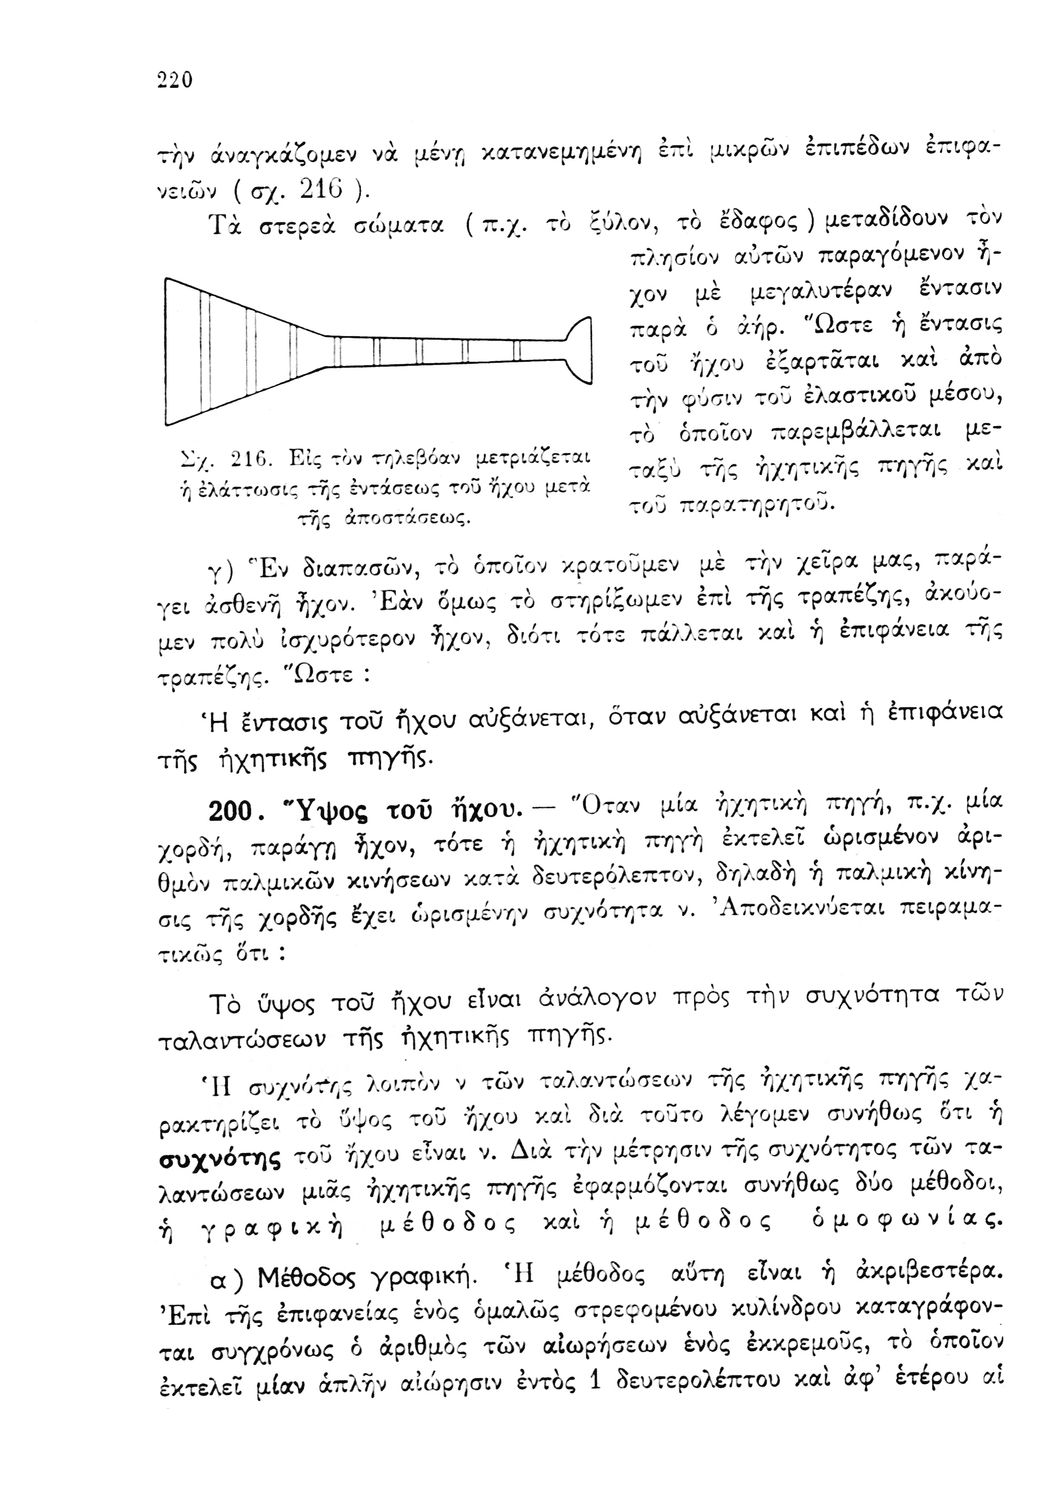 220
τὴν ἀναγκάζομεν νὰ μένῃ κατανεμημένη ἐπὶ μικρῶν ἐπιπέδων ἐπιφα-
νειῶν ( σχ. 216 ).
Τὰ στερεὰ σώματα ( π.χ. τὸ ξύλον, τὸ ἔδαφος ) μεταδίδουν τὸν
πλησίον αὐτῶν παραγόμενον ἦ-
χον μὲ μεγαλυτέραν ἔντασιν
παρὰ ὁ ἀήρ. Ὥστε ἡ ἔντασις
τοῦ ἤχου ἐξαρτᾶται καὶ ἀπὸ
τὴν φύσιν τοῦ ἐλαστικοῦ μέσου,
τὸ ὁποῖον παρεμβάλλεται με-
ταξὺ τῆς ἠχητικῆς πηγῆς καὶ
τοῦ παρατηρητοῦ.
Σχ. 216. Εἰς τὸν τηλεβόαν μετριάζεται
ἡ ἐλάττωσις τῆς ἐντάσεως τοῦ ἤχου μετὰ
τῆς ἀποστάσεως.
γ) Ἓν διαπασῶν, τὸ ὁποῖον κρατοῦμεν μὲ τὴν χεῖρα μας, παρά-
γει ἀσθενῆ ἦχον. Ἐὰν ὅμως τὸ στηρίξωμεν ἐπὶ τῆς τραπέζης, ἀκούο-
μεν πολὺ ἰσχυρότερον ἦχον, διότι τότε πάλλεται καὶ ἡ ἐπιφάνεια τῆς
τραπέζης. Ὥστε :
Ἡ ἔντασις τοῦ ἤχου αὐξάνεται, ὅταν αὐξάνεται καὶ ἡ ἐπιφάνεια
τῆς ἠχητικῆς πηγῆς.
200. Ὕψος τοῦ ἤχου. — Ὅταν μία ἠχητικὴ πηγή, π.χ. μία
χορδή, παράγῃ ἦχον, τότε ἡ ἠχητικὴ πηγὴ ἐκτελεῖ ὡρισμένον ἀρι-
θμὸν παλμικῶν κινήσεων κατὰ δευτερόλεπτον, δηλαδὴ ἡ παλμικὴ κίνη-
σις τῆς χορδῆς ἔχει ὡρισμένην συχνότητα ν. Ἀποδεικνύεται πειραμα-
τικῶς ὅτι :
Τὸ ὕψος τοῦ ἤχου εἶναι ἀνάλογον πρὸς τὴν συχνότητα τῶν
ταλαντώσεων τῆς ἠχητικῆς πηγῆς.
Ἡ συχνότης λοιπὸν ν τῶν ταλαντώσεων τῆς ἠχητικῆς πηγῆς χα-
ρακτηρίζει τὸ ὕψος τοῦ ἤχου καὶ διὰ τοῦτο λέγομεν συνήθως ὅτι ἡ
συχνότης τοῦ ἤχου εἶναι ν. Διὰ τὴν μέτρησιν τῆς συχνότητος τῶν τα-
λαντώσεων μιᾶς ἠχητικῆς πηγῆς ἐφαρμόζονται συνήθως δύο μέθοδοι,
ἡ γραφικὴ μέθοδος καὶ ἡ μέθοδος ὁμοφωνίας.
α) Μέθοδος γραφική. Ἡ μέθοδος αὕτη εἶναι ἡ ἀκριβεστέρα.
Ἐπὶ τῆς ἐπιφανείας ἑνὸς ὁμαλῶς στρεφομένου κυλίνδρου καταγράφον-
ται συγχρόνως ὁ ἀριθμὸς τῶν αἰωρήσεων ἑνὸς ἐκκρεμοῦς, τὸ ὁποῖον
ἐκτελεῖ μίαν ἁπλῆν αἰώρησιν ἐντὸς 1 δευτερολέπτου καὶ ἀφ’ ἑτέρου αἱ